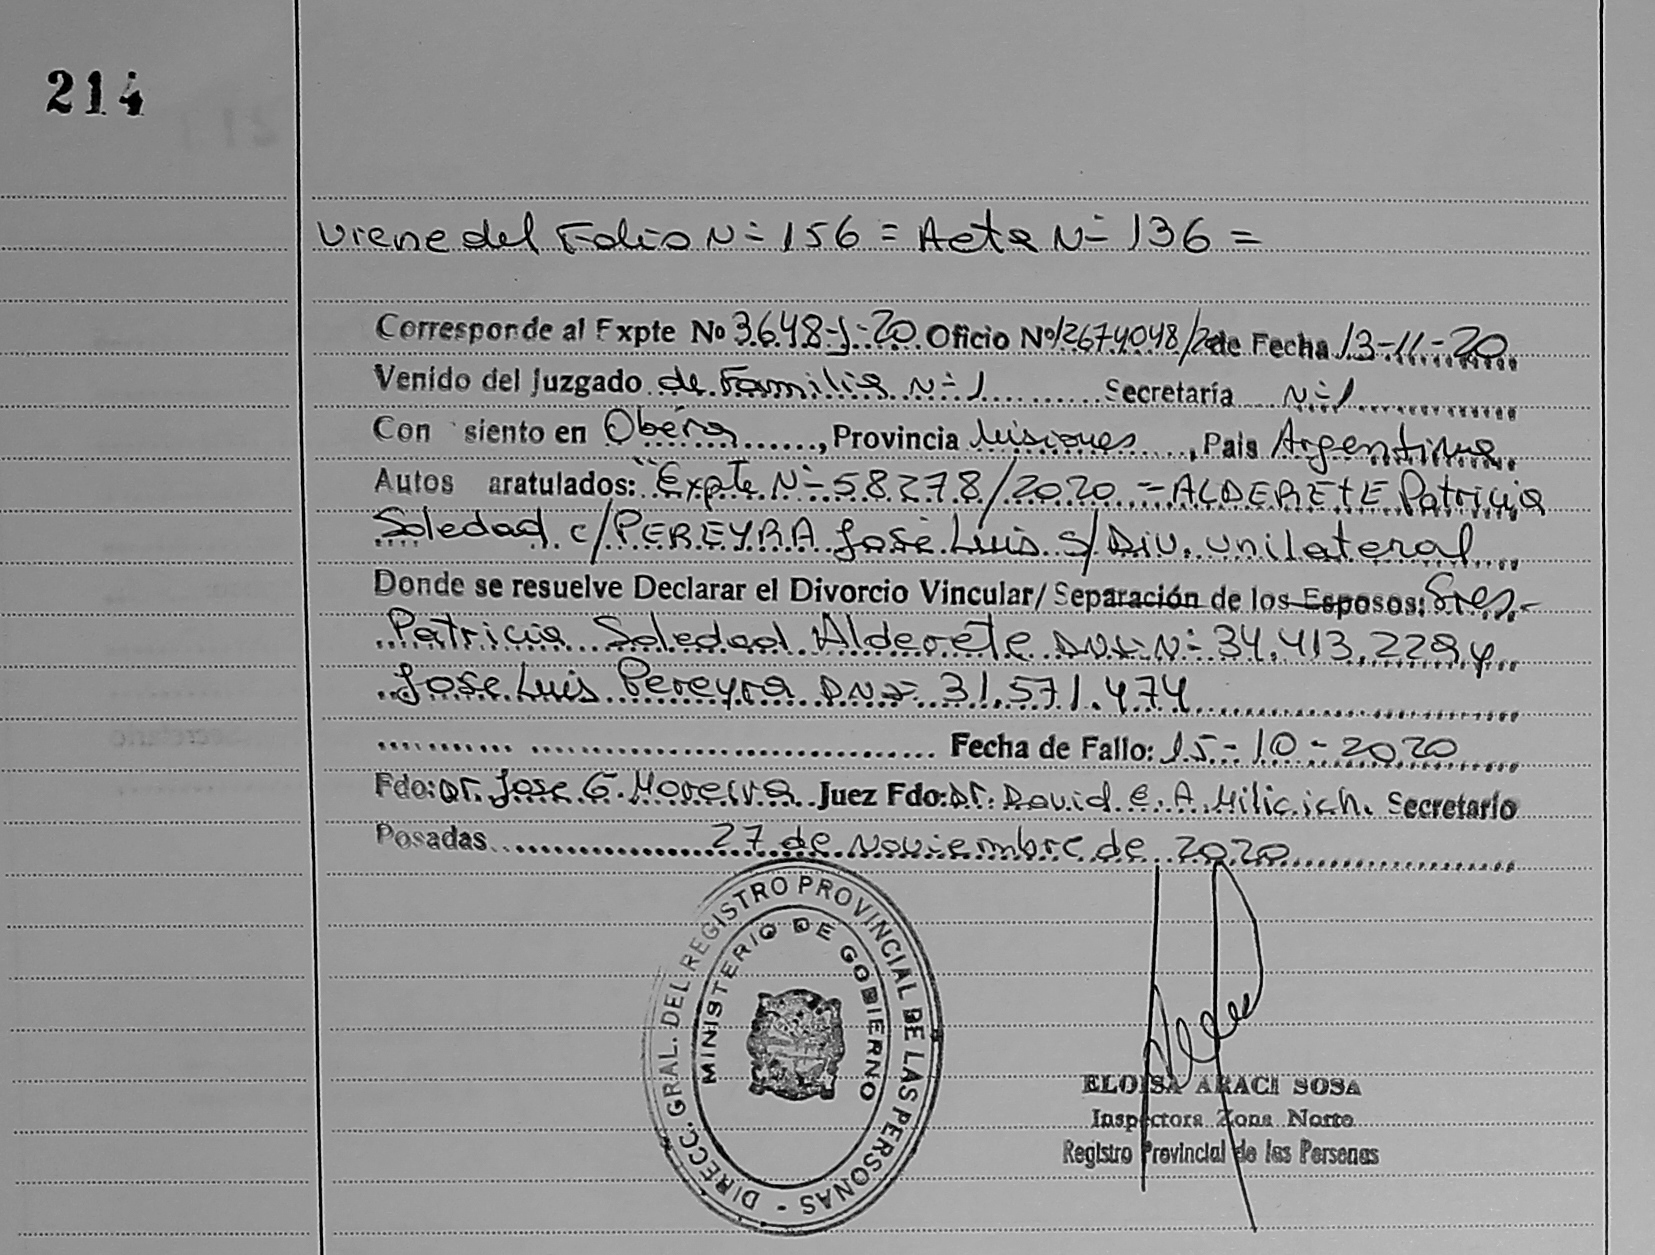 214
Viene del Folio Nº 156 = Acta Nº 136 =
Corresponde al Expte No 3648-J-20 Oficio Nº 12674048/20 de Fecha 13-11-20
Venido del Juzgado de Familia Nº 1 Secretaría Nº 1
Con siento en Oberá, Provincia Misiones, País Argentina
Autos aratulados: "Expte Nº 58278/2020 - ALDERETE Patricia
Soledad c/PEREYRA José Luis s/Div. unilateral
Donde se resuelve Declarar el Divorcio Vincular/ Separación de los Esposos: Sres.-
Patricia Soledad Alderete DNI Nº 34.413.229 y
José Luis Pereyra DNI 31.571.474
Fecha de Fallo: 15-10-2020
Fdo: Dr. Jose G. Moreira Juez Fdo: Dr. David E. A. Milicich. Secretario
Posadas 27 de Noviembre de 2020
DIRECC. GRAL. DEL REGISTRO PROVINCIAL DE LAS PERSONAS -
MINISTERIO DE GOBIERNO
ELOISA ARACI SOSA
Inspectora Zona Norte
Registro Provincial de las Personas